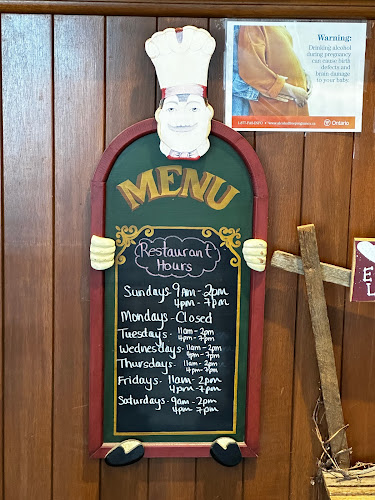 Warning:
Drinking alcohol
during pregnancy
can cause birth
defects and
brain damage
to your baby.
Ontario
MENU
Restaurant
Hours
Sundays - 9AM - 2pm
4pm - 7pm
Mondays - Closed
Tuesdays - 11am - 2pm
4pm - 7pm
Wednesdays - 11am - 2pm
4pm - 7pm
Thursdays - 11am - 2pm
4pm - 7pm
Fridays - 11am - 2pm
4pm - 7pm
Saturdays - 9am - 2pm
4pm - 7pm